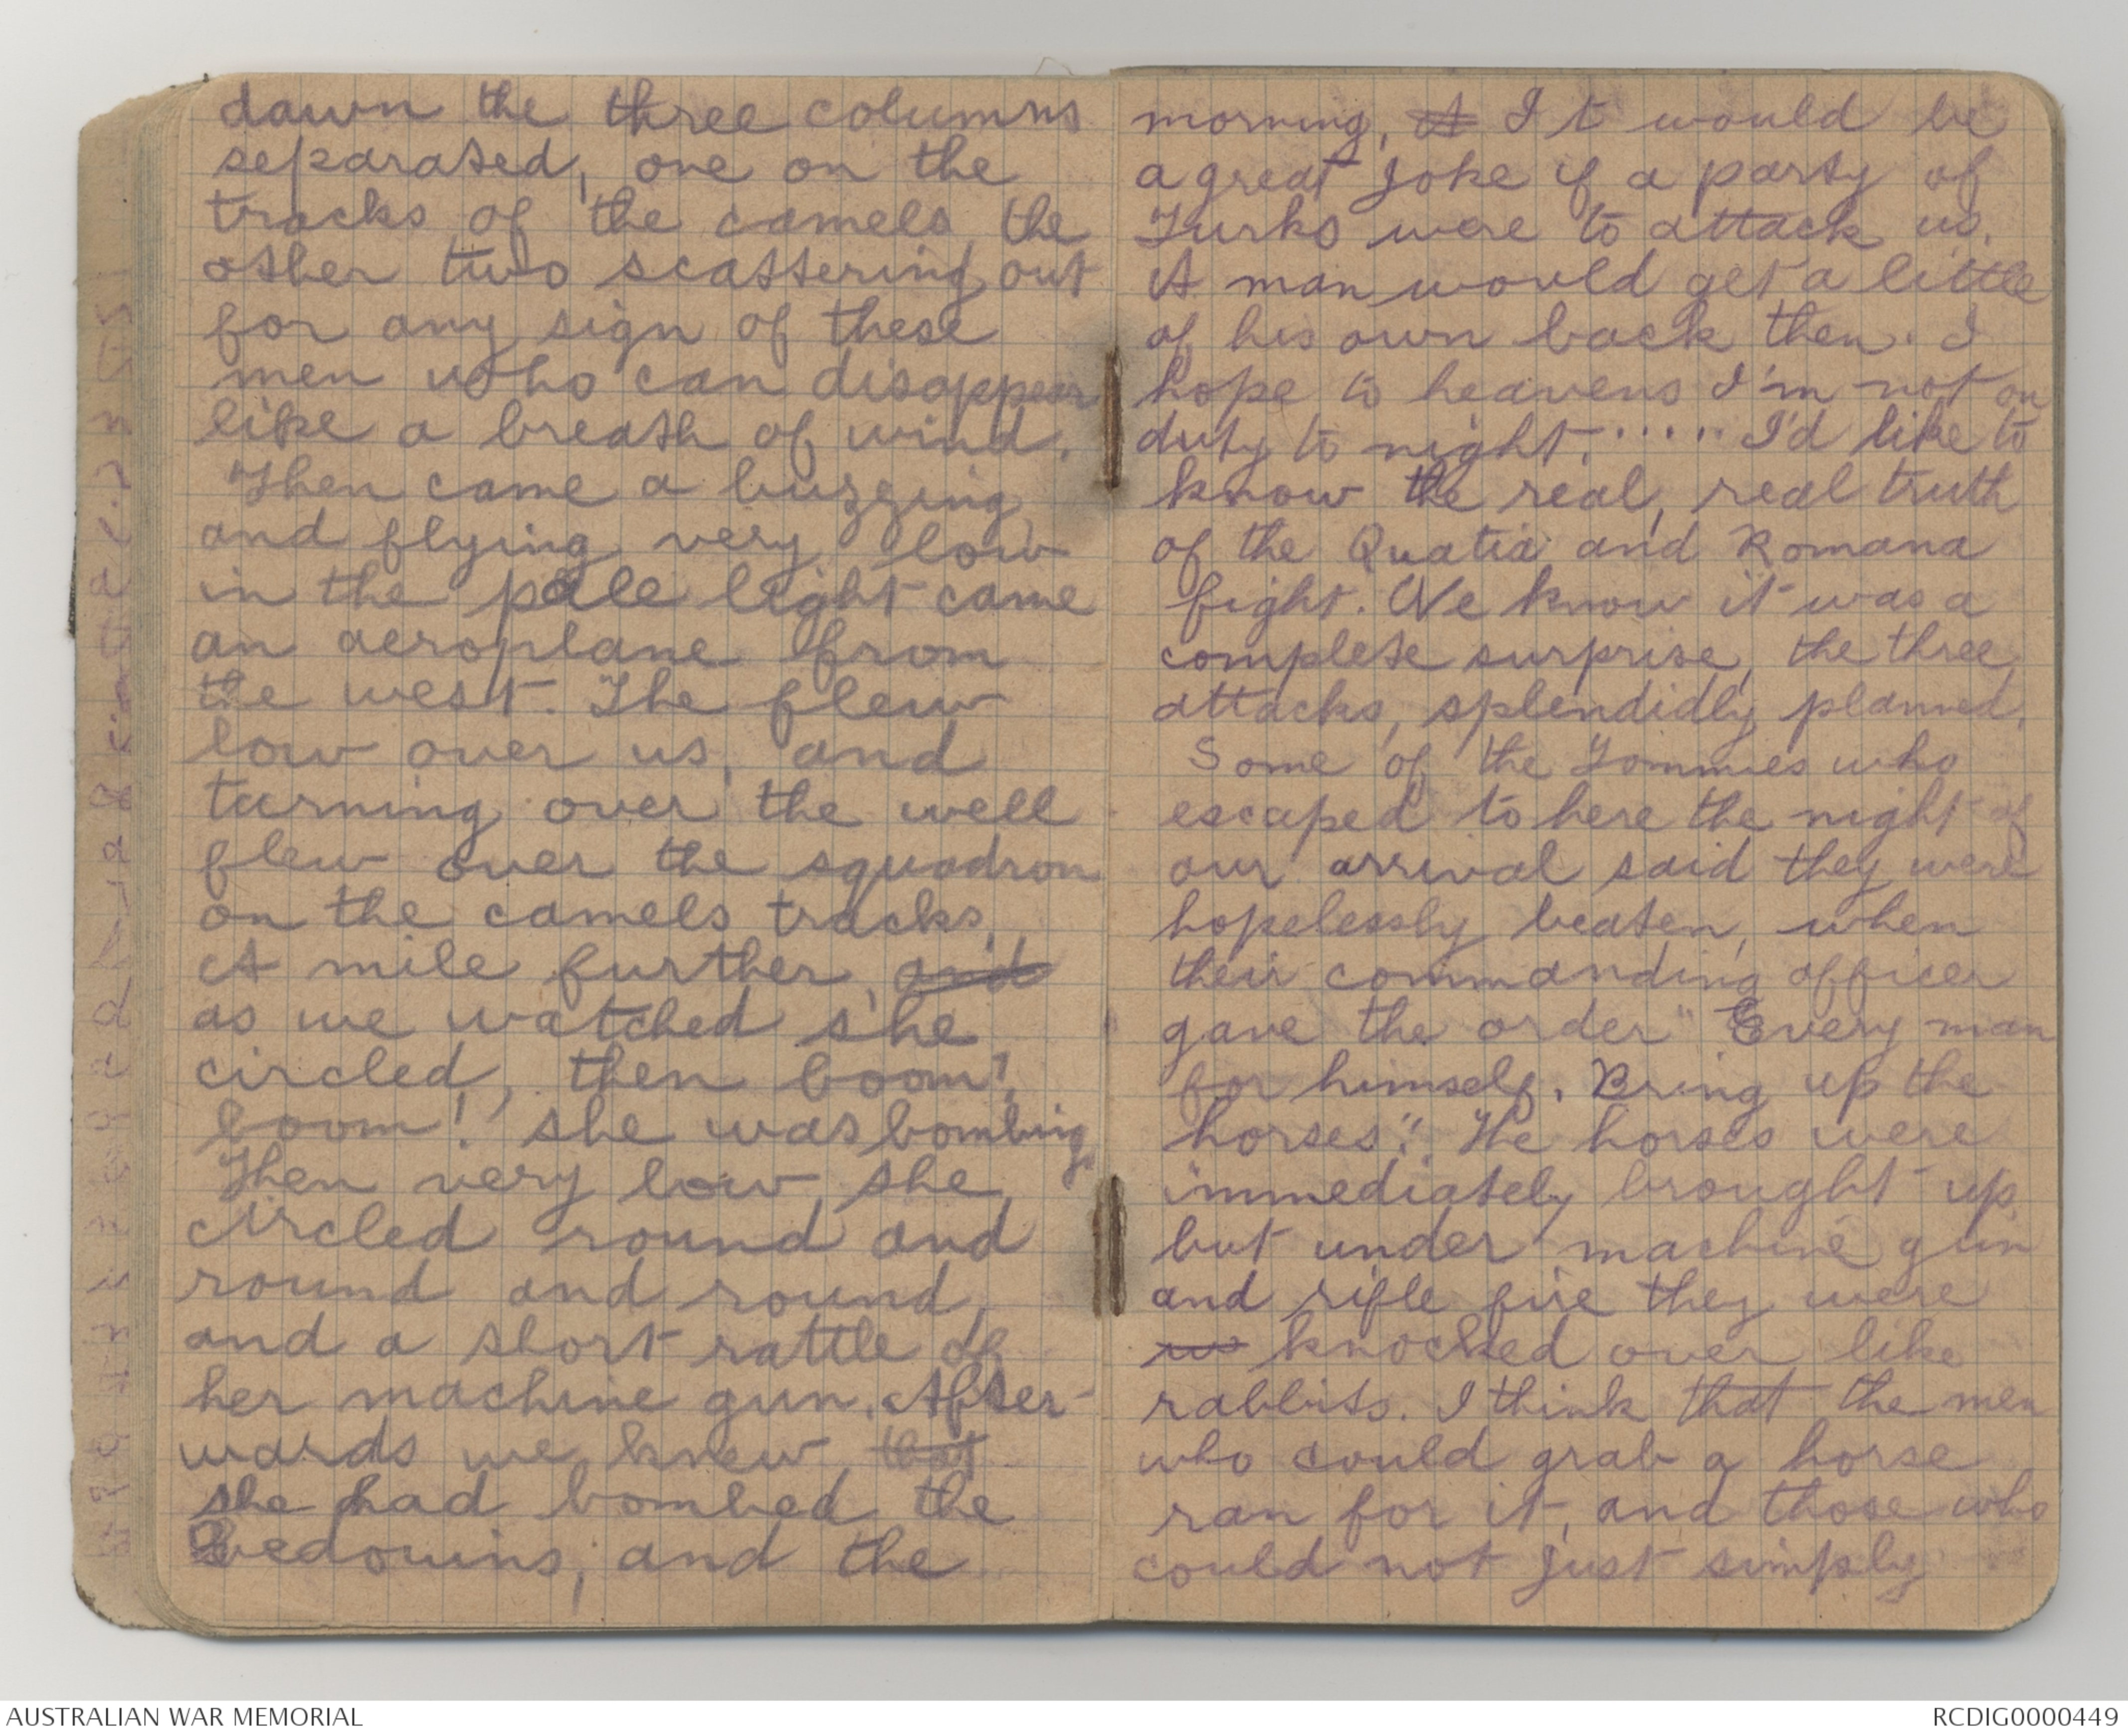 dawn the three columns
separated, one on the
tracks of the camels, the
other two scattering out
for any sign of these
men who can disappear
like a breath of wind.
Then came a buzzing
and flying very low
in the pale light came
an aeroplane from
the west. The flew
low over us, and
turning over the well
flew over the squadron
on the camels tracks.
A mile further, and
as we watched she
circled, then boom!
boom! she was bombing.
Then very low she
circled round and
round and round,
and a short rattle of
her machine gun. After-
wards we knew that
she had bombed the
Bedouins, and the
morning, A It would be
a great joke if a party of
Turks were to attack us.
A man would get a little
of his own back then. I
hope to heavens I'm not on
duty to night. ..... I'd like to
know the real, real truth
of the Quatia and Romana
fight. We know it was a
complete surprise, the three
attacks, splendidly planned.
Some of the Tommies who
escaped to here the night of
our arrival said they were
hopelessly beaten, when
their commanding officer
gave the order "Every man
for himself. Bring up the
horses". The horses were
immediately brought up,
but under machine gun
and rifle fire they were
knocked over like
rabbits. I think that the men
who could grab a horse
ran for it, and those who
could not just simply
AUSTRALIAN WAR MEMORIAL
RCDIG0000449